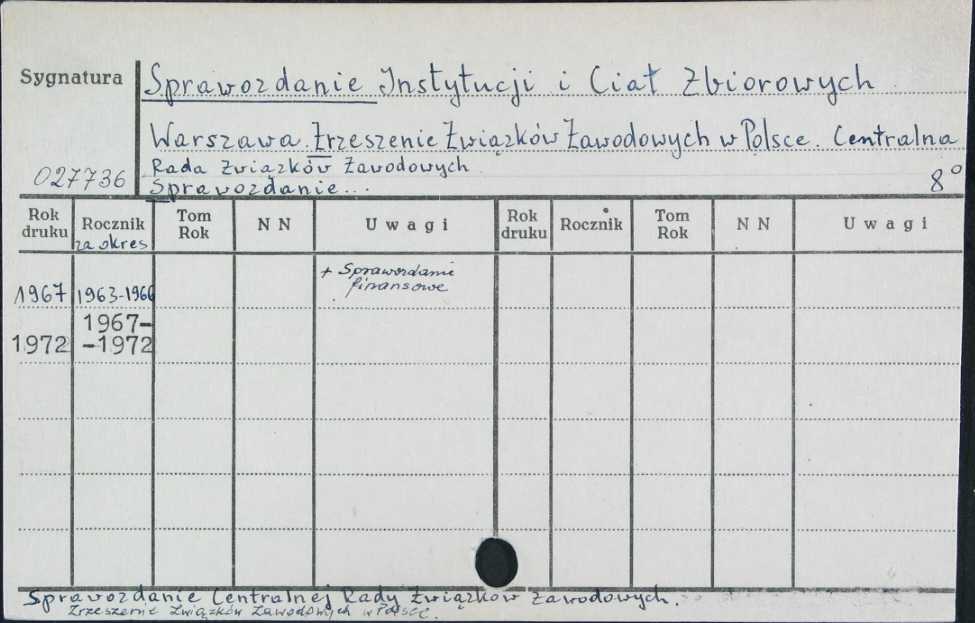 Sygnatura
Sprawozdanie Instytucji i Ciał Zbiorowych
Warszawa. Zrzeszenie Związków Zawodowych w Polsce. Centralna
Rada Związków Zawodowych
027736
Sprawozdanie...
8°
Rok druku Rocznik Tom Rok N N Uwagi Rok druku Rocznik Tom Rok N N Uwagi
za okres
1967 1963-1966 + Sprawozdanie
finansowe
1967-
1972 -1972
Sprawozdanie Centralnej Rady Związków Zawodowych.
Zrzeszenie Związków Zawodowych w Polsce.